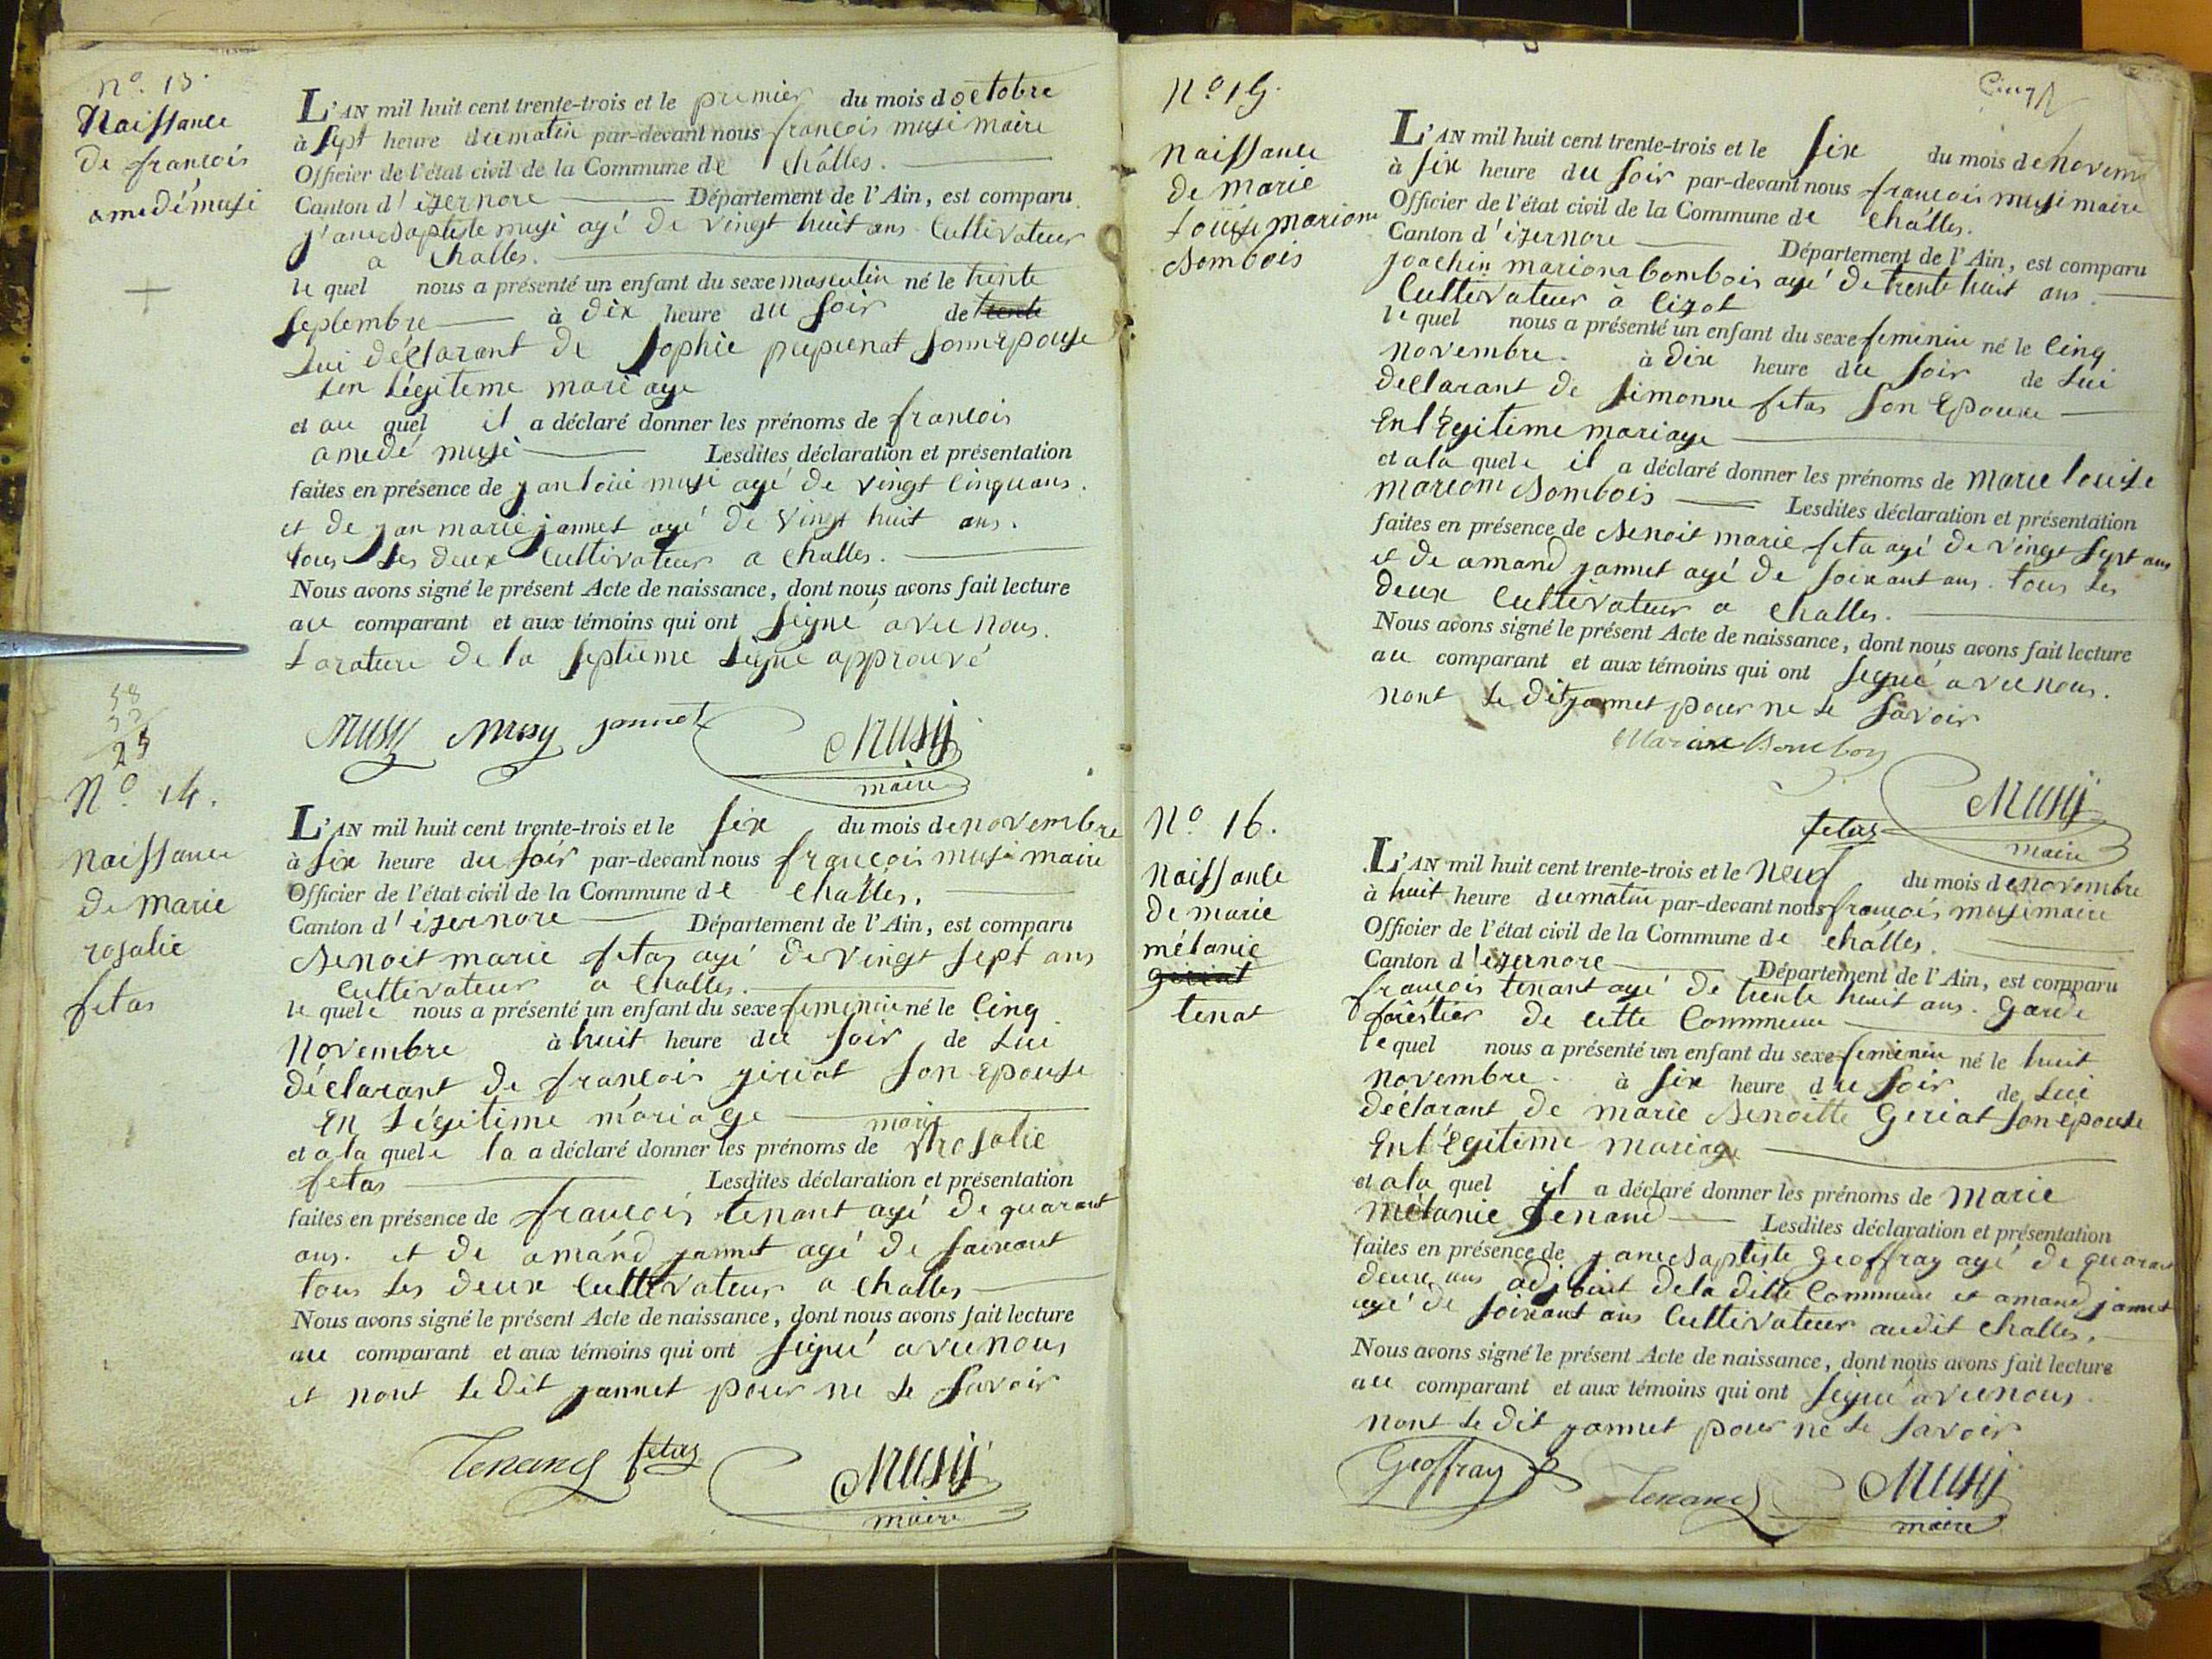 n°. 13.
Naissance
de françois
amedé musi
L'AN mil huit cent trente-trois et le premier du mois d octobre
à sept heure du matin par-devant nous françois musi maire
Officier de l'état civil de la Commune de challes.
Canton d'izernore Département de l'Ain, est comparu
jane Baptiste musi agé de vingt huit ans Cultivateur
a Challes.
le quel nous a présenté un enfant du sexe masculin né le trente
septembre à dix heure du soir de trente
Lui déclarant de sophie pupunat sonn epouse
en légiteme mariage
et au quel il a déclaré donner les prénoms de françois
amedé musi Lesdites déclaration et présentation
faites en présence de jan louii musi agé de vingt cinquans.
et de jan marie jannet agé de vingt huit ans.
tous les deux Cultivateur a challes.
Nous avons signé le présent Acte de naissance, dont nous avons fait lecture
au comparant et aux témoins qui ont signé avec nous.
La rature de la septieme ligne approuvé
Musy Musy jannet Musy
maire
58
33
25
N°. 14.
naissance
de marie
rosalie
fetas
L'AN mil huit cent trente-trois et le six du mois de novembre
à six heure du soir par-devant nous françois musi maire
Officier de l'état civil de la Commune de challes.
Canton d'izernore Département de l'Ain, est comparu
Benoit marie fetas agé de vingt sept ans
Cultivateur a Challes.
le quele nous a présenté un enfant du sexe feminin né le Cinq
novembre à huit heure du soir de Lui
déclarant de françois giriat son epouse
En Légitime mariage
marie
et a la quele la a déclaré donner les prénoms de rosalie
fetas Lesdites déclaration et présentation
faites en présence de françois tenant agé de quarant
ans. et de amand jannet agé de soixant
tous les deux Cultivateur a challes
Nous avons signé le présent Acte de naissance, dont nous avons fait lecture
au comparant et aux témoins qui ont signé avec nous
et nont le dit jannet pour ne le savoir
Tenand fetas Musy
maire
Cinq
N° 15.
naissance
de marie
Louise marion
Bombois
L'AN mil huit cent trente-trois et le six du mois de novem
à six heure du soir par-devant nous françois musi maire
Officier de l'état civil de la Commune de challes.
Canton d'izernore Département de l'Ain, est comparu
joachin marion bombois agé de trente huit ans.
Cultivateur à Cizot
le quel nous a présenté un enfant du sexe feminin né le Cinq
novembre. à dix heure du soir de Lui
declarant de simonne fetas son Epouxe
En légitime mariage
et a la quele il a déclaré donner les prénoms de marie louise
marion Bombois Lesdites déclaration et présentation
faites en présence de Benoit marie feta agé de vingt sept ans
et de amand jannet agé de soixant ans. tous les
deux Cultivateur a challes.
Nous avons signé le présent Acte de naissance, dont nous avons fait lecture
au comparant et aux témoins qui ont signé avec nous.
nont le dit jannet pour ne le savoir
Marion Bomboy
Musy
fetas
maire
N° 16.
naissance
de marie
mélanie
giriat
tenat
L'AN mil huit cent trente-trois et le neuf du mois de novembre
à huit heure du matin par-devant nous françois musi maire
Officier de l'état civil de la Commune de challes.
Canton d'izernore Département de l'Ain, est comparu
françois tenant agé de trente huit ans. garde
forêstier de cette Commune
le quel nous a présenté un enfant du sexe feminin né le huit
novembre. à six heure du soir de Lui
déclarant de marie Benoitte Geriat son epouse
En légitime mariage
et a la quel il a déclaré donner les prénoms de marie
mélanie tenand Lesdites déclaration et présentation
faites en présence de jane Baptiste geoffray agé de quarant
deux ans adjoint de la dite Commune et amand jannet
agé de soixant ans Cultivateur audit challes.
Nous avons signé le présent Acte de naissance, dont nous avons fait lecture
au comparant et aux témoins qui ont signé avec nous
nont le dit jannet pour ne le savoir
Geoffray Tenand Musy
maire